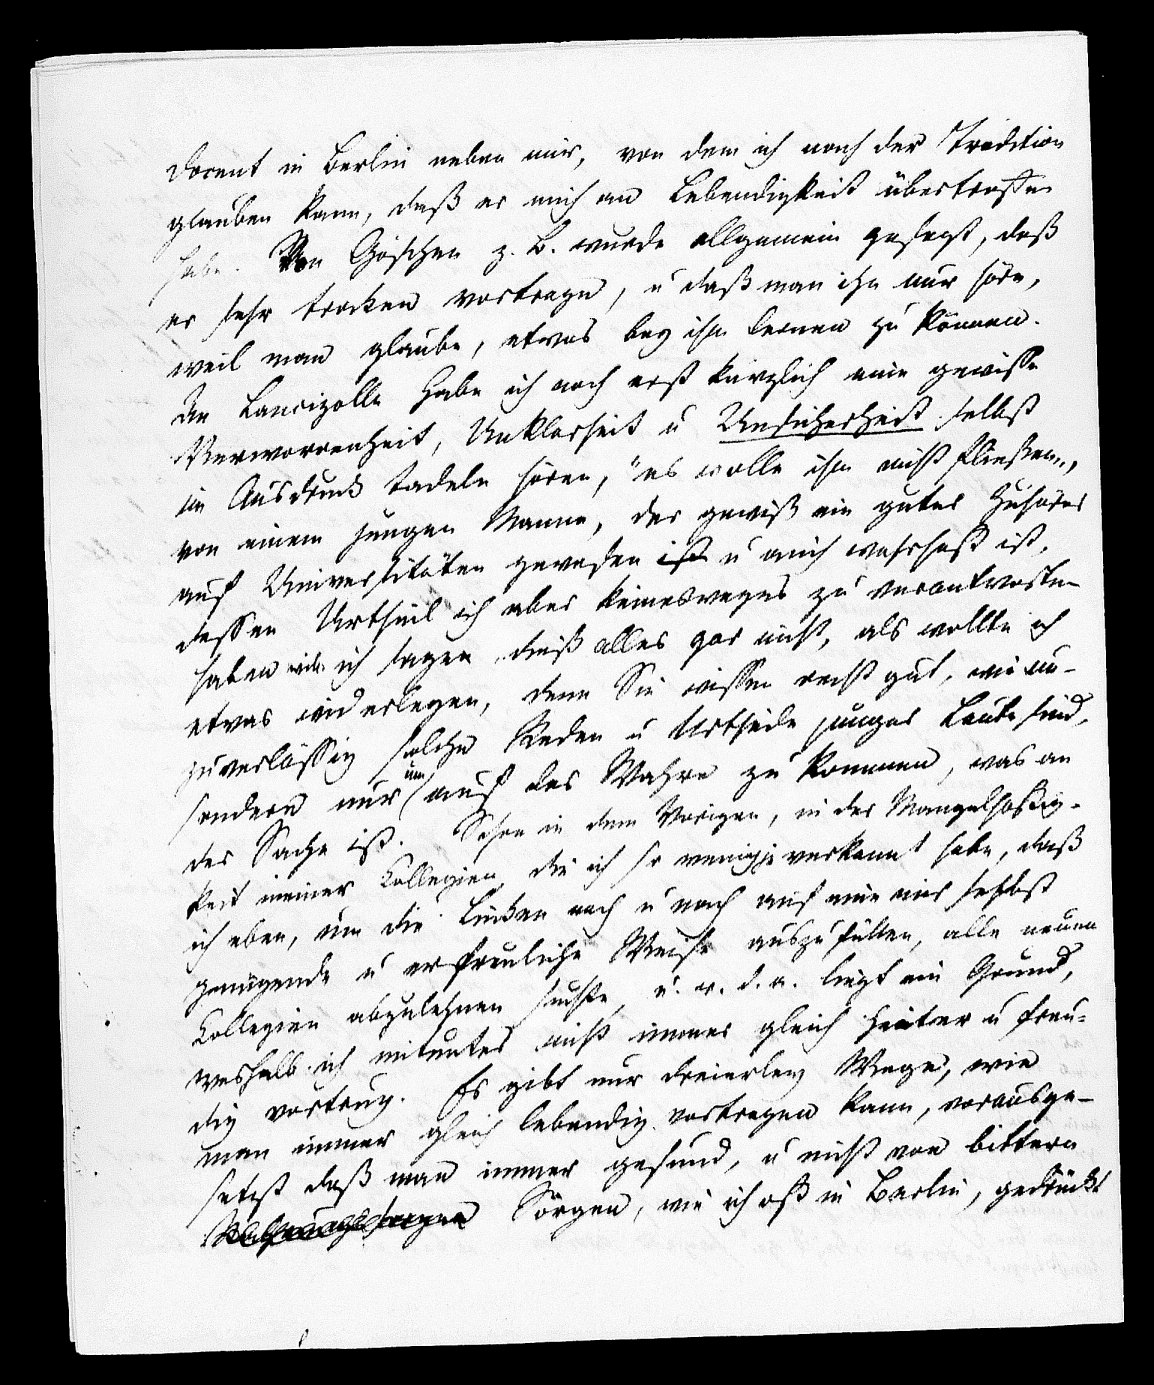 docent in Berlin neben mir, von dem ich nach der Tradition
glauben kann, daß er mich an Lebendigkeit übertroffen
habe. Von Göschen z. B. wurde allgemein gesagt, daß
er sehr trocken vortrage, u daß man ihn nur höre,
weil man glaube, etwas bey ihm lernen zu können.
An Lancizolle habe ich noch erst kürzlich eine gewisse
Verworrenheit, Unklarheit u Unsicherheit selbst
im Ausdruck tadeln hören, "es wolle ihm nicht fließen",
von einem jungen Manne, der gewiß ein guter Zuhörer
auf Universitäten gewesen ist u auch wahrhaft ist,
dessen Urtheil ich aber keinesweges zu verantworten
haben will. ich sage dieß alles gar nicht, als wollte ich
etwas widerlegen, denn Sie wissen recht gut, wie un-
zuverlässig solche Reden u Urtheile junger Leute sind,
sondern nur um auf das Wahre zu kommen, was an
der Sache ist. Schon in dem Vorigen, in der Mangelhaftig-
keit meiner Collegien, die ich so wenig je verkannt habe, daß
ich eben, um die Lücken nach u nach auf eine mir selbst
genügende u erfreuliche Weise auszufüllen, alle neuen
Collegien abzulehnen suchte, u. s. d. a. liegt ein Grund,
weshalb ich mitunter nicht immer gleich heiter u freu-
dig vortrug. Es gibt nur dreierley Wege, wie
man immer gleich lebendig vortragen kann, vorausge-
setzt daß man immer gesund, u nicht von bittern
Sorgen, wie ich oft in Berlin, gedrückt